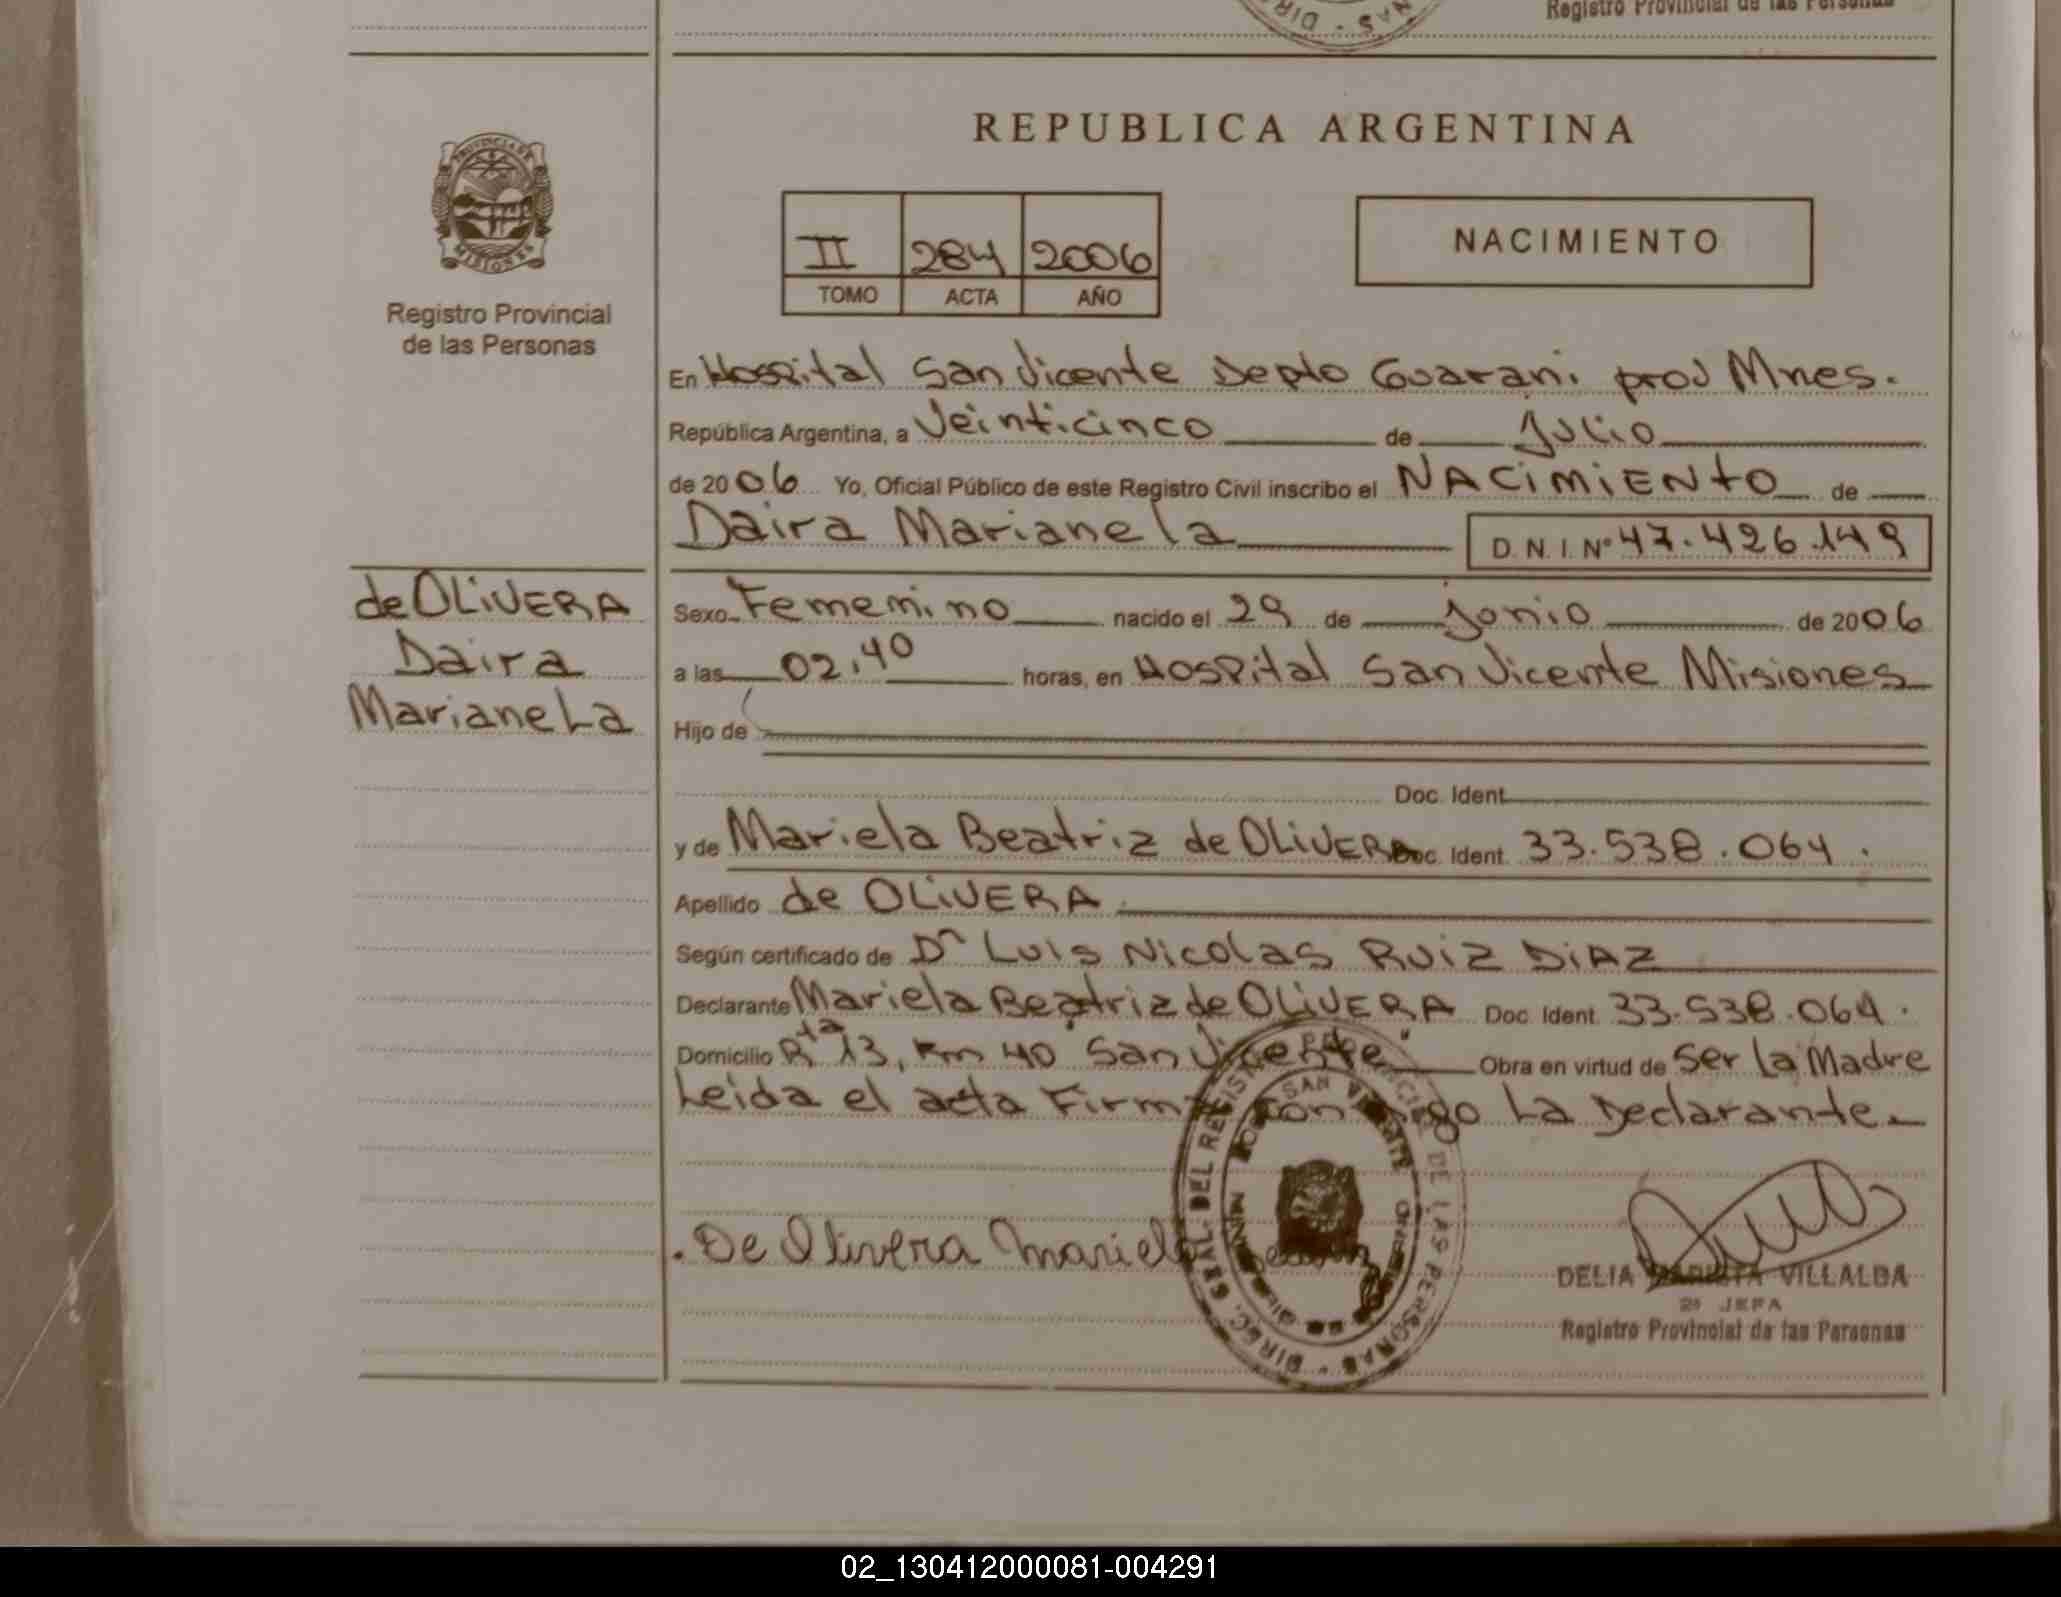 Registro Provincial de las Personas
REPUBLICA ARGENTINA
PROVINCIA DE
MISIONES
Registro Provincial
de las Personas
II 284 2006
TOMO ACTA AÑO
NACIMIENTO
En Hospital San Vicente Depto Guarani prov Mnes.
República Argentina, a Veinticinco de Julio
de 2006 Yo, Oficial Público de este Registro Civil inscribo el NACIMIENTO de
Daira Marianela D.N.I. Nº 47.426.149
de OLIVERA
Daira
Marianela
Sexo Femenino nacido el 29 de Junio de 2006
a las 02,40 horas, en Hospital San Vicente Misiones
Hijo de
Doc. Ident.
y de Mariela Beatriz de OLIVERA Doc. Ident. 33.538.064.
Apellido de OLIVERA
Según certificado de Dr Luis Nicolas Ruiz DiAZ
Declarante Mariela Beatriz de OLIVERA Doc. Ident. 33.538.064.
Domicilio Rta 13, Km 40 San Vicente Obra en virtud de Ser La Madre
Leida el acta Firma conmigo La Declarante
De Olivera Mariela
DIREC. GRAL. DEL REGISTRO PROVINCIAL DE LAS PERSONAS
SAN VICENTE
DELIA VILLALBA
2ª JEFA
Registro Provincial de las Personas
02_130412000081-004291